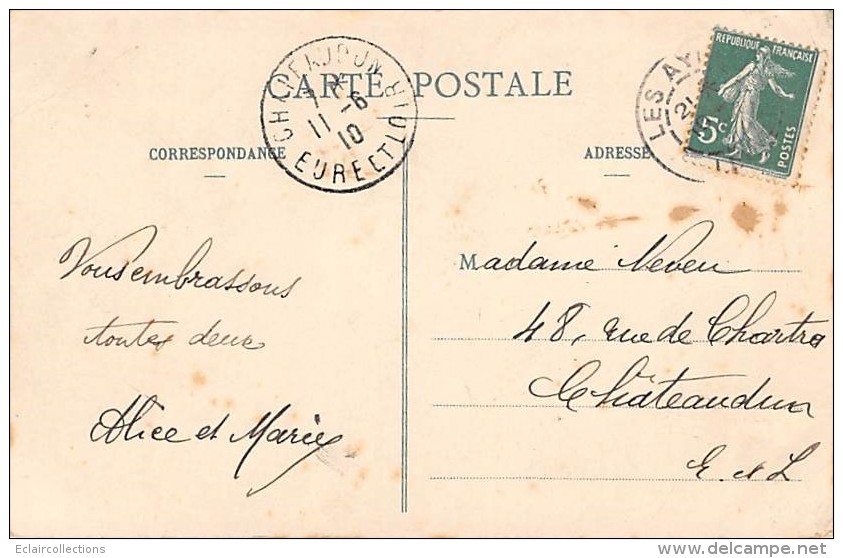 CARTE POSTALE
CHATEAUDUN
11 -6
10
EURE ET LOIR
LES AY
21
REPUBLIQUE FRANÇAISE
5c
POSTES
CORRESPONDANCE
ADRESSE
Vous embrassons
toutes deux
Alice et Marie
Madame Neveu
48, rue de Chartres
Châteaudun
E. et L
Eclaircollections
delcampe.net